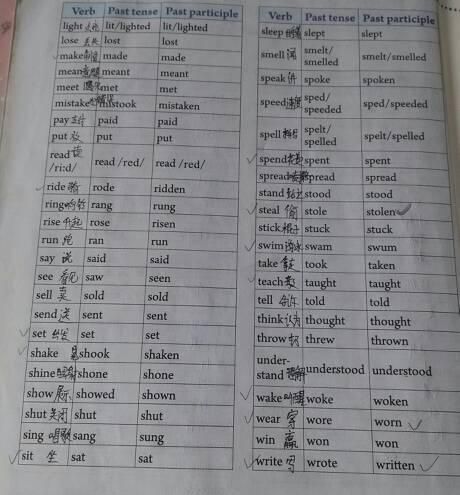 Verb Past tense Past participle
light lit/lighted lit/lighted
lose 丢失 lost lost
make 制造 made made
mean meant meant
meet met met
mistake mistook mistaken
pay 支付 paid paid
put 放 put put
read 读 /ri:d/ read /red/ read /red/
ride 骑 rode ridden
ring rang rung
rise 升起 rose risen
run 跑 ran run
say 说 said said
see 看见 saw seen
sell 卖 sold sold
send 送 sent sent
set set set
shake shook shaken
shine shone shone
show 展示 showed shown
shut 关闭 shut shut
sing 唱歌 sang sung
sit 坐 sat sat
Verb Past tense Past participle
sleep slept slept
smell 闻 smelt/smelled smelt/smelled
speak 说 spoke spoken
speed 速度 sped/speeded sped/speeded
spell spelt/spelled spelt/spelled
spend 花费 spent spent
spread spread spread
stand stood stood
steal 偷 stole stolen
stick 棍子 stuck stuck
swim 游泳 swam swum
take took taken
teach 教 taught taught
tell 告诉 told told
think 认为 thought thought
throw 扔 threw thrown
under-stand 理解 understood understood
wake 叫醒 woke woken
wear 穿 wore worn
win 赢 won won
write 写 wrote written